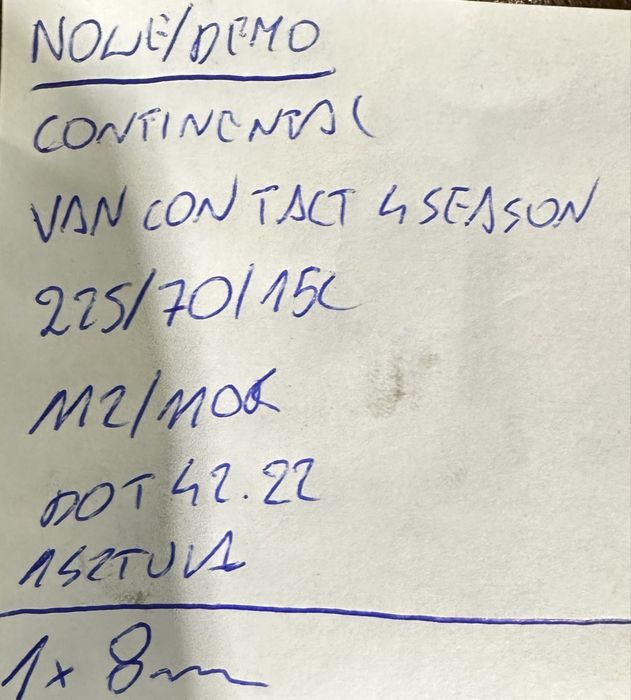 NOWE/DEMO
CONTINENTAL
VAN CONTACT 4SEASON
225/70/15C
112/110R
DOT 42.22
1SZTUKA
1x 8mm